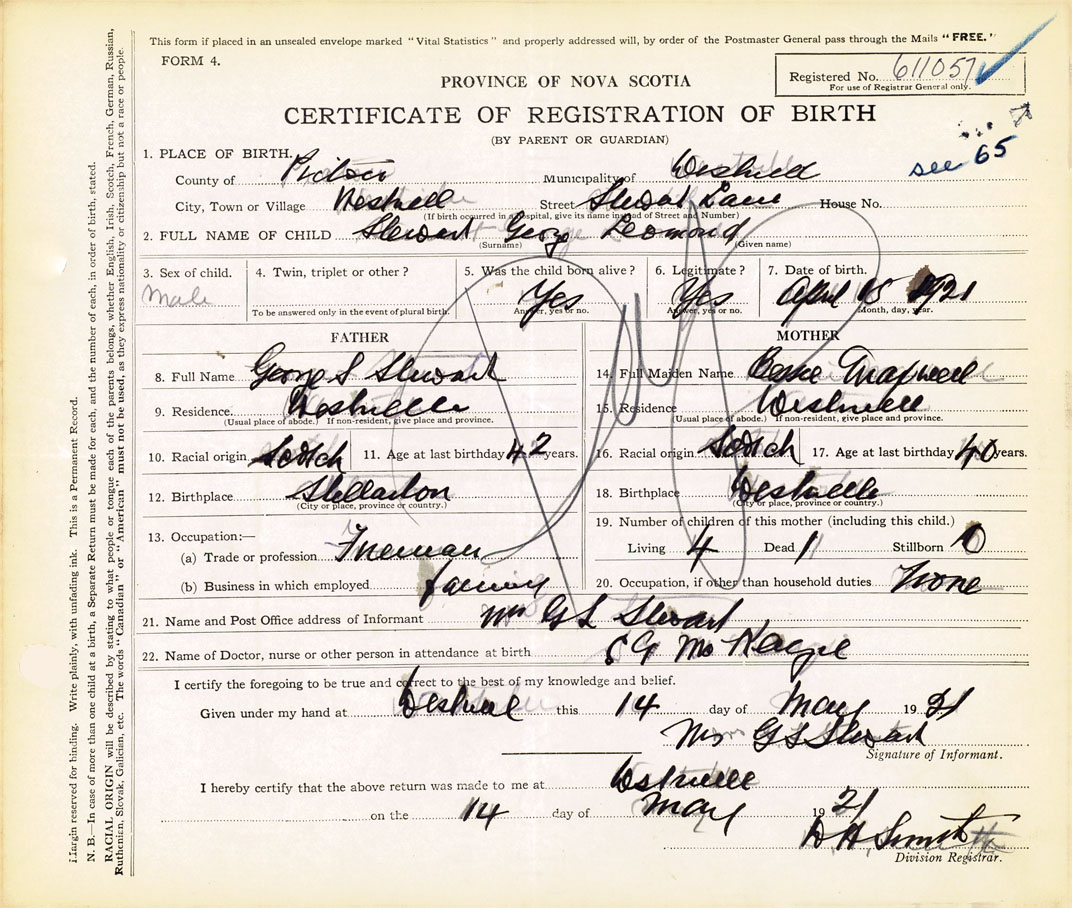 This form if placed in an unsealed envelope marked "Vital Statistics" and properly addressed will, by order of the Postmaster General pass through the Mails "FREE."
FORM 4.
Registered No. 611057
For use of Registrar General only.
PROVINCE OF NOVA SCOTIA
CERTIFICATE OF REGISTRATION OF BIRTH
(BY PARENT OR GUARDIAN)
see 65
1. PLACE OF BIRTH.
County of Pictou Municipality of Westville
City, Town or Village Westville Street Stewart Lane House No.
(If birth occurred in a hospital, give its name instead of Street and Number)
2. FULL NAME OF CHILD Stewart George
(Surname) (Given name)
3. Sex of child. 4. Twin, triplet or other? 5. Was the child born alive? 6. Legitimate? 7. Date of birth.
Male Yes Yes April 15 1921
To be answered only in the event of plural birth. Answer, yes or no. Answer, yes or no. Month, day, year.
FATHER MOTHER
8. Full Name George S Stewart 14. Full Maiden Name Bessie Maxwell
9. Residence. Westville 15. Residence Westville
(Usual place of abode.) If non-resident, give place and province. (Usual place of abode.) If non-resident, give place and province.
10. Racial origin. Scotch 11. Age at last birthday 42 years. 16. Racial origin Scotch 17. Age at last birthday 40 years.
12. Birthplace Stellarton 18. Birthplace Westville
(City or place, province or country.) (City or place, province or country.)
13. Occupation:— 19. Number of children of this mother (including this child.)
(a) Trade or profession Living 4 Dead 1 Stillborn 0
(b) Business in which employed 20. Occupation, if other than household duties None
21. Name and Post Office address of Informant Mrs G S Stewart
22. Name of Doctor, nurse or other person in attendance at birth
I certify the foregoing to be true and correct to the best of my knowledge and belief.
Given under my hand at Westville this 14 day of May 1921
Mrs G S Stewart
Signature of Informant.
I hereby certify that the above return was made to me at Westville
on the 14 day of May 1921
D H Smith
Division Registrar.
Margin reserved for binding. Write plainly, with unfading ink. This is a Permanent Record.
N. B.—In case of more than one child at a birth, a Separate Return must be made for each, and the number of each, in order of birth, stated.
RACIAL ORIGIN will be described by stating to what people or tongue each of the parents belongs, whether English, Irish, Scotch, French, German, Russian,
Ruthenian, Slovak, Galician, etc. The words "Canadian" or "American" must not be used, as they express nationality or citizenship but not a race or people.